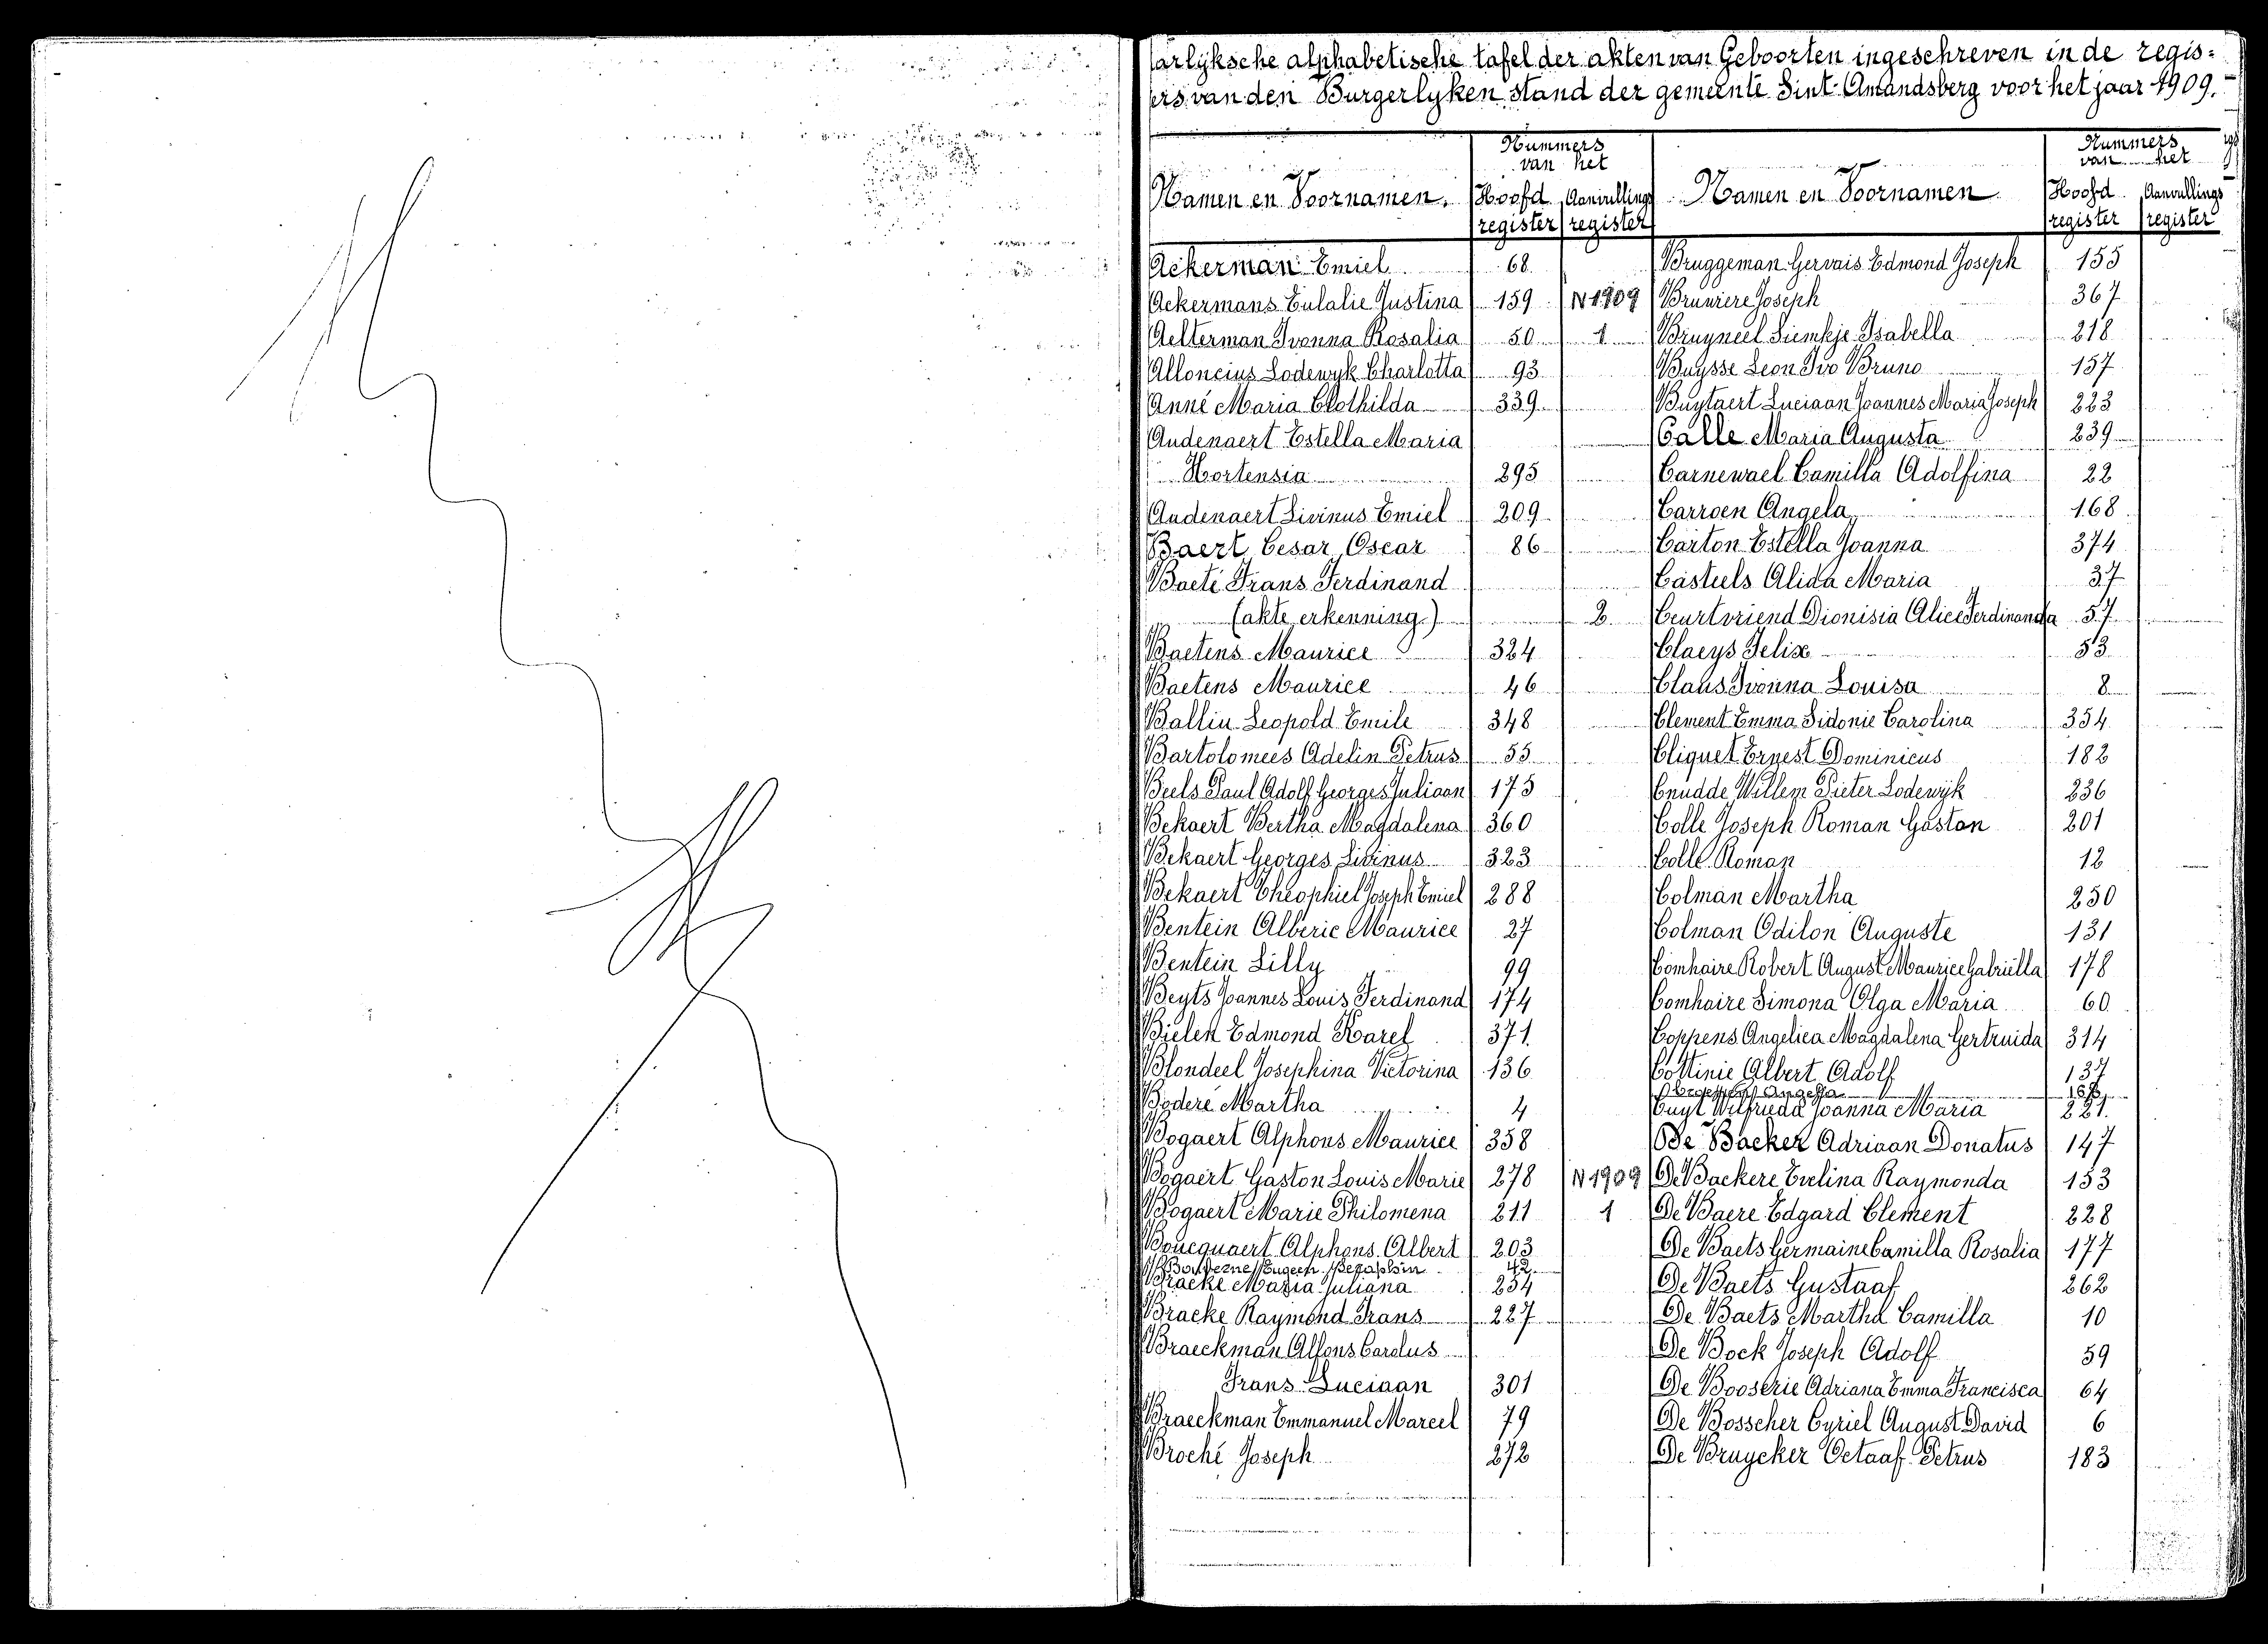 Jaarlyksche alphabetische tafel der akten van Geboorten ingeschreven in de regis=
ters van den Burgerlyken stand der gemeente Sint-Amandsberg voor het jaar 1909.-
Namen en Voornamen. Nummers van het Hoofd register Aanvullings register
Ackerman Emiel 68
Ackermans Eulalie Justina 159 N 1909
Aelterman Ivonna Rosalia 50 1
Alloncius Lodewyk Charlotta 93
Anné Maria Clothilda 339
Audenaert Estella Maria
Hortensia 295
Audenaert Livinus Emiel 209
Baert Cesar Oscar 86
Baeté Frans Ferdinand
(akte erkenning) 2
Baetens Maurice 324
Baetens Maurice 46
Ballin Leopold Emile 348
Bartolomees Adelin Petrus 55
Beels Paul Adolf Georges Juliaan 175
Bekaert Bertha Magdalena 360
Bekaert Georges Livinus 323
Bekaert Theophiel Joseph Emiel 288
Bentein Alberic Maurice 27
Bentein Lilly 99
Beyts Joannes Louis Ferdinand 174
Bielen Edmond Karel 371
Blondeel Josephina Victorina 136
Boderé Martha 4
Bogaert Alphons Maurice 358
Bogaert Gaston Louis Marie 278 N 1909
Bogaert Marie Philomena 211 1
Boucquaert Alphons Albert 203
42
Bracke Maria Juliana 254
Bracke Raymond Frans 227
Braeckman Alfons Carolus
Frans Luciaan 301
Braeckman Emmanuel Marcel 79
Broché Joseph 272
Namen en Voornamen. Nummers van het Hoofd register Aanvullings register
Bruggeman Gervais Edmond Joseph 155
Bruwiere Joseph 367
Bruyneel Siemkje Isabella 218
Buysse Leon Ivo Bruno 157
Buytaert Luciaan Joannes Maria Joseph 223
Calle Maria Augusta 239
Carnewael Camilla Adolfina 22
Carroen Angela 168
Carton Estella Joanna 374
Casteels Alida Maria 37
Ceurtvriend Dionisia Alice Ferdinanda 57
Claeys Felix 53
Claus Ivonna Louisa 8
Clement Emma Sidonie Carolina 354
Cliquet Ernest Dominicus 182
Cnudde Willem Pieter Lodewyk 236
Colle Joseph Roman Gaston 201
Colle Roman 12
Colman Martha 250
Colman Odilon Auguste 131
Comhaire Robert August Maurice Gabriella 178
Comhaire Simona Olga Maria 60
Coppens Angelica Magdalena Gertruida 314
Cottinie Albert Adolf 137
Cuyt Wilfrieda Joanna Maria 221
De Backer Adriaan Donatus 147
De Backere Evelina Raymonda 153
De Baere Edgard Clement 228
De Baets Germaine Camilla Rosalia 177
De Baets Gustaaf 262
De Baets Martha Camilla 10
De Bock Joseph Adolf 59
De Booserie Adriana Emma Francisca 64
De Bosscher Cyriel August David 6
De Bruycker Octaaf Petrus 183